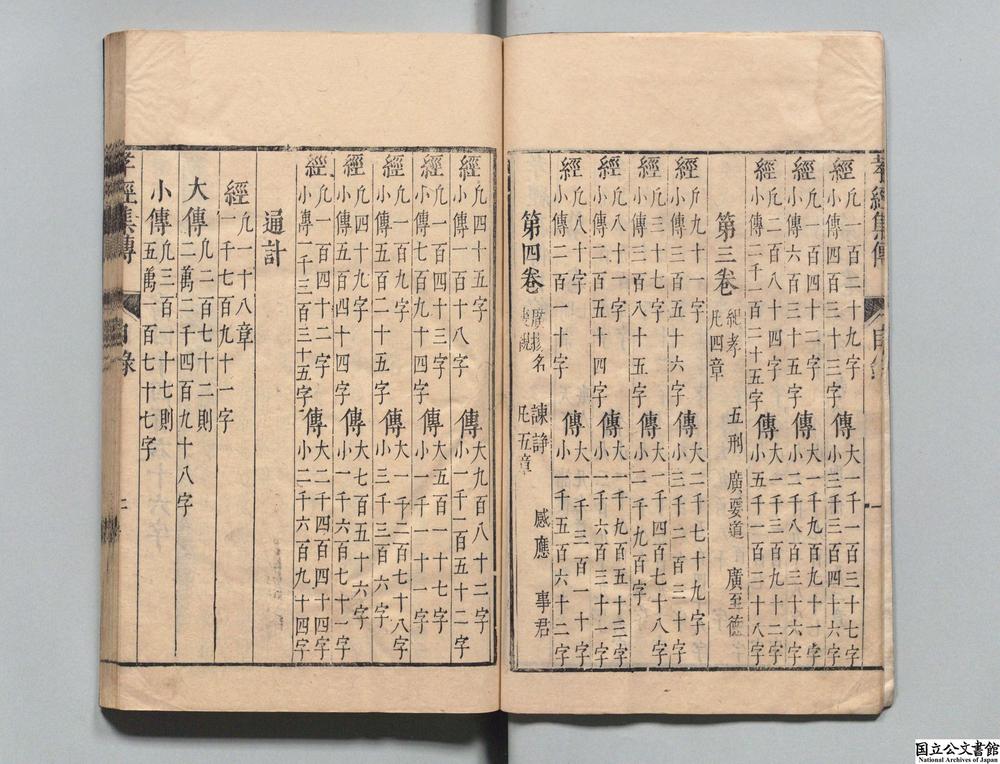 孝經集傳 目錄 一
經 凢一百二十九字 小傳三百三十三字 傳 大一千一百三十七字 小三千三百四十六字
經 凢一百四十二字 小傳六百三十五字 傳 大一千九百九十一字 小二千八百三十六字
經 凢二百八十四字 小傳二千一百二十五字 傳 大一千三百九十二字 小五千一百二十八字
第三卷 紀孝 五刑 廣要道 廣至德 凢四章
經 凢九十一字 小傳三百五十六字 傳 大二千七十九字 小三千二百三十字
經 凢三十七字 小傳八百五十五字 傳 大一千四百七十八字 小二千九百字
經 凢八十一字 小傳二百五十四字 傳 大一千九百五十三字 小一千六百三十一字
經 凢八十字 小傳二百一十字 傳 大一千三百一十字 小一千五百六十二字
第四卷 廣揚名 諫諍 感應 事君 喪親 凢五章
經 凢四十五字 小傳一百十八字 傳 大九百八十二字 小一千一百五十二字
經 凢一百四十三字 小傳七百九十四字 傳 大五百一十七字 小一千一十一字
經 凢一百一字 小傳五百二十五字 傳 大一千二百七十八字 小一千三百六字
經 凢四十九字 小傳五百四十四字 傳 大七百五十六字 小一千六百七十一字
經 凢一百四十二字 小傳一千三百三十五字 傳 大二千四百四十四字 小二千六百九十四字
通計
經 凢一十八章 一千七百九十一字
大傳 凢二百七十二則 二萬二千四百九十八字
小傳 凢三百一十七則 五萬一百七十七字
孝經集傳 目錄 二
国立公文書館
National Archives of Japan